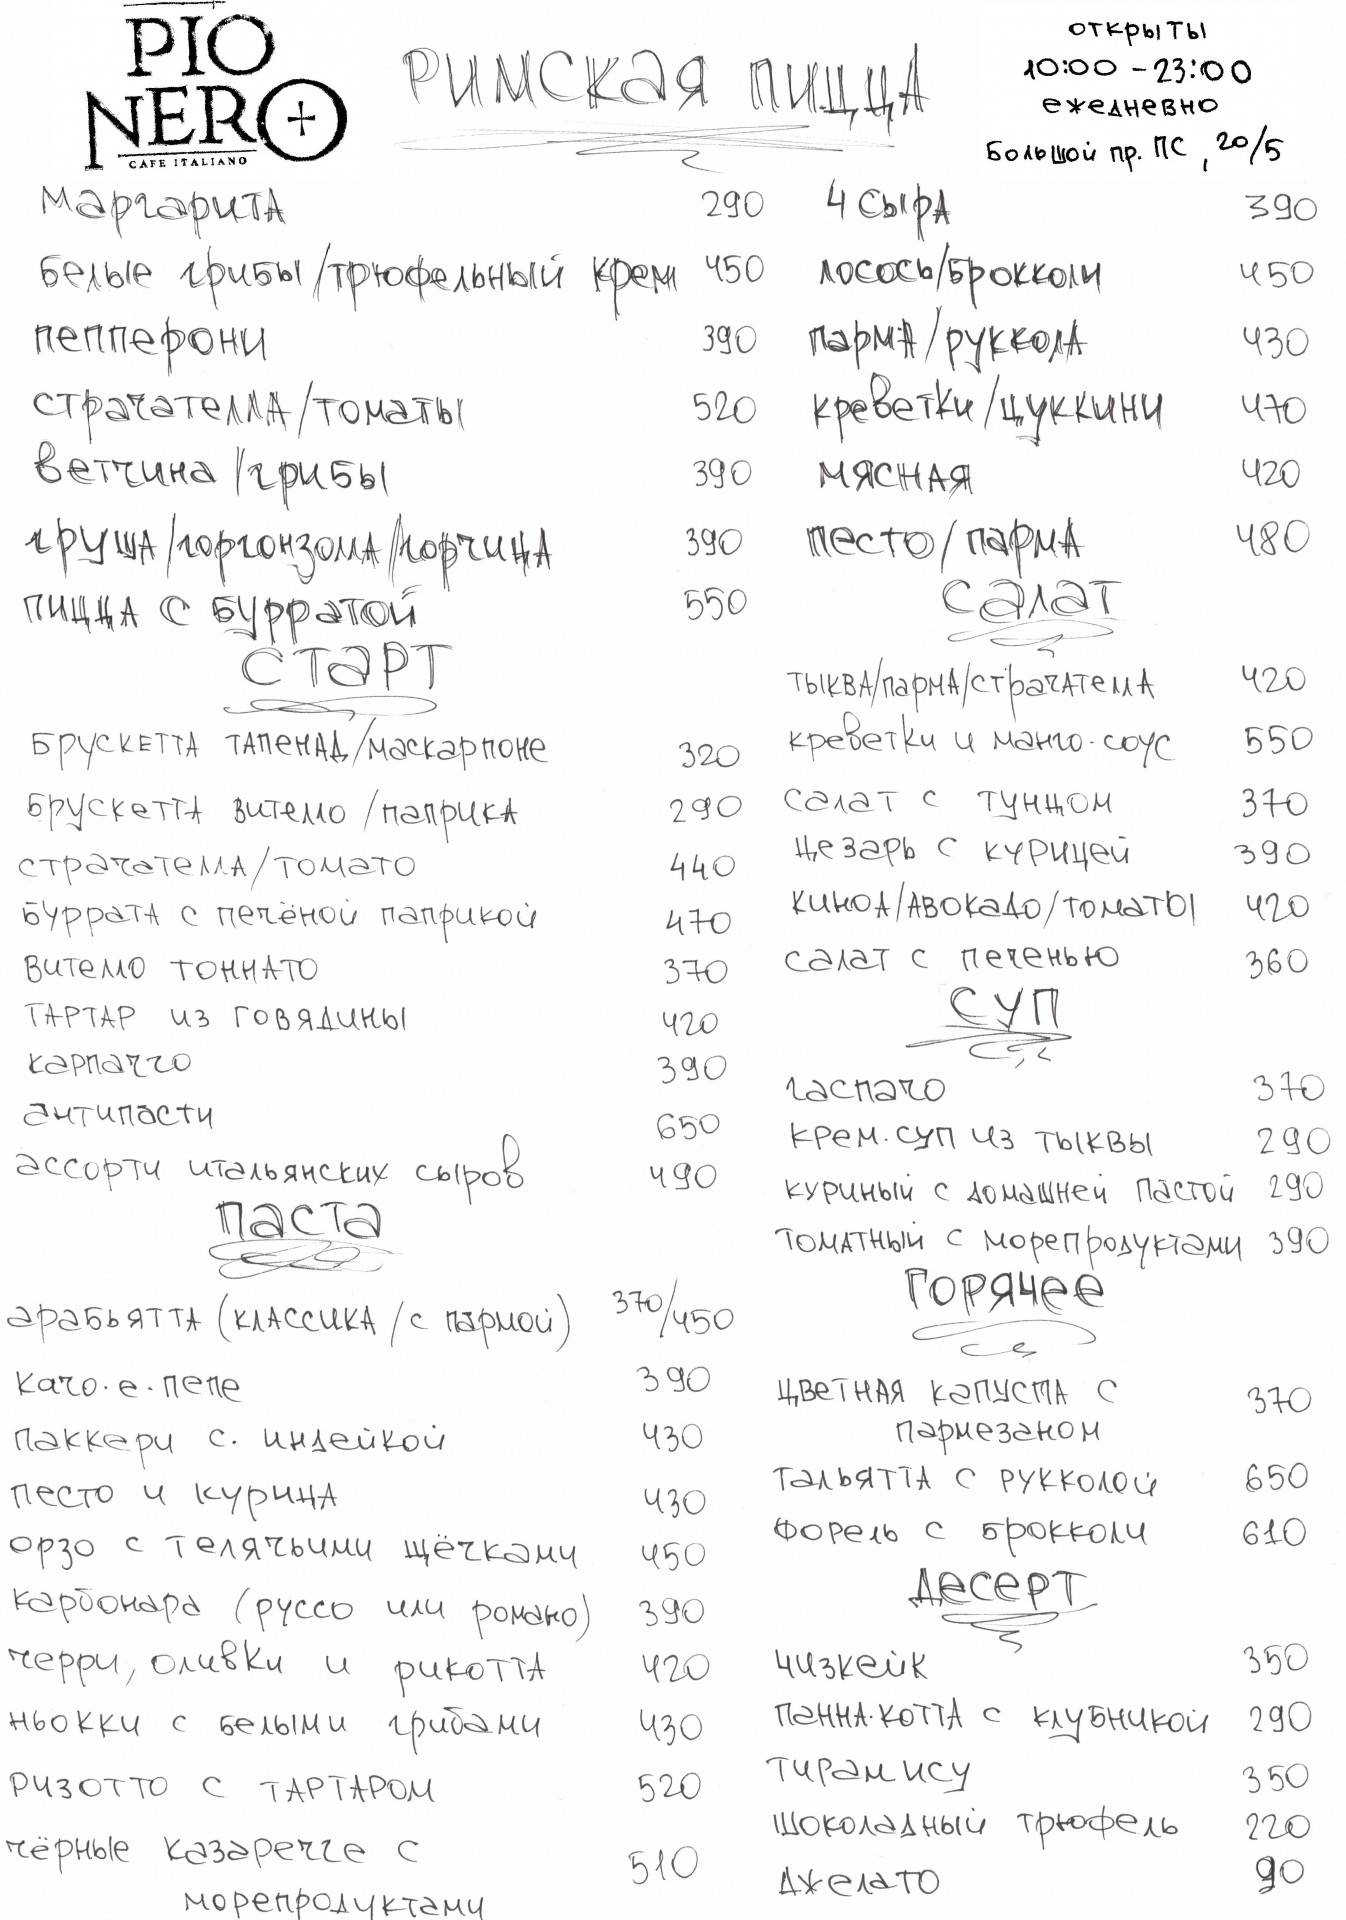 PIO
NERO
CAFE ITALIANO
РИМСКАЯ ПИЦЦА
ОТКРЫТЫ
10:00 - 23:00
ЕЖЕДНЕВНО
Большой пр. ПС, 20/5
Маргарита 290
белые грибы/трюфельный крем 450
пепперони 390
страчателла/томаты 520
ветчина/грибы 390
груша/горгонзола/горчица 390
пицца с бурратой 550
СТАРТ
Брускетта тапенад/маскарпоне 320
Брускетта вителло/паприка 290
страчателла/томато 440
буррата с печёной паприкой 470
вителло тоннато 370
тартар из говядины 420
карпаччо 390
антипасти 650
ассорти итальянских сыров 490
ПАСТА
арабьятта (классика/с пармой) 370/450
качо-е-пепе 390
паккери с. индейкой 430
песто и курица 430
орзо с телячьими щёчками 450
карбонара (руссо или романо) 390
черри, оливки и рикотта 420
ньокки с белыми грибами 430
ризотто с тартаром 520
чёрные казаречче с 510
морепродуктами
4 сыра 390
лосось/брокколи 450
парма/руккола 430
креветки/цуккини 470
мясная 420
песто/парма 480
САЛАТ
тыква/парма/страчателла 420
креветки и манго-соус 550
салат с тунцом 370
цезарь с курицей 390
киноа/авокадо/томаты 420
салат с печенью 360
СУП
гаспачо 370
крем-суп из тыквы 290
куриный с домашней пастой 290
томатный с морепродуктами 390
ГОРЯЧЕЕ
цветная капуста с 370
пармезаном
тальятта с рукколой 650
форель с брокколи 610
ДЕСЕРТ
чизкейк 350
панна-котта с клубникой 290
тирамису 350
шоколадный трюфель 220
джелато 90